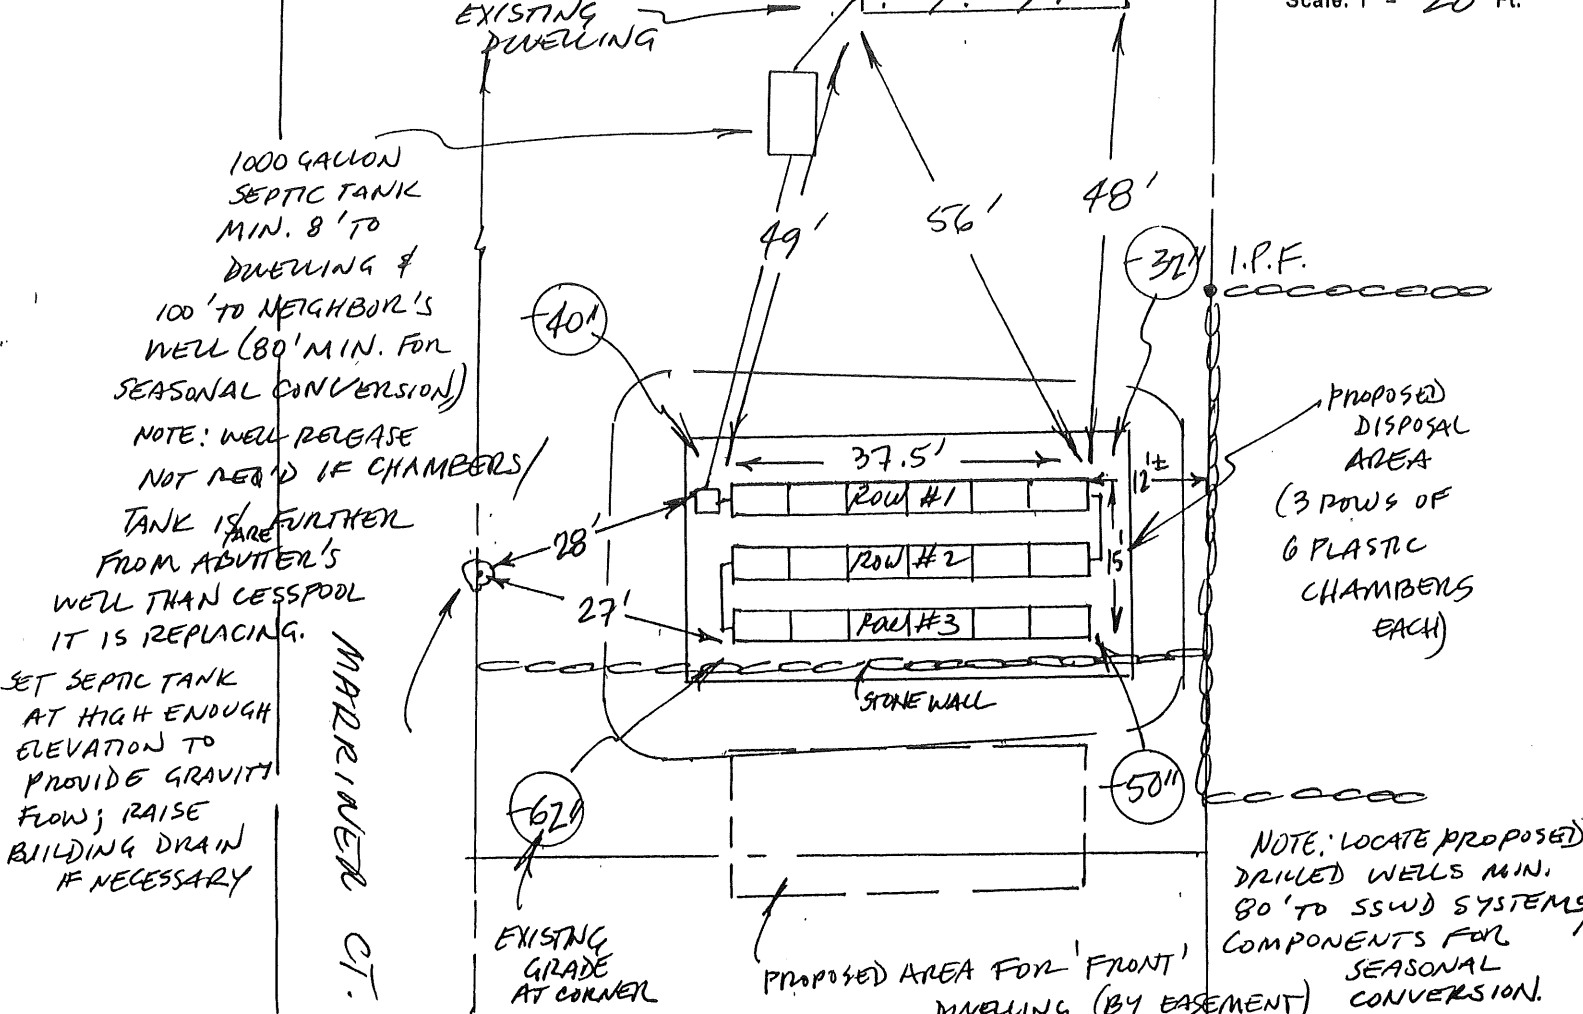 EXISTING
DWELLING
Scale: 1" = 20 Ft.
1000 GALLON
SEPTIC TANK
MIN. 8' TO
DWELLING &
100' TO NEIGHBOR'S
WELL (80' MIN. FOR
SEASONAL CONVERSION)
NOTE: WELL RELEASE
NOT REQ'D IF CHAMBERS/
TANK IS/ARE FURTHER
FROM ABUTTER'S
WELL THAN CESSPOOL
IT IS REPLACING.
SET SEPTIC TANK
AT HIGH ENOUGH
ELEVATION TO
PROVIDE GRAVITY
FLOW; RAISE
BUILDING DRAIN
IF NECESSARY
MARRINER CT.
49'
56'
48'
-40"
-32"
I.P.F.
37.5'
12'±
15'
ROW #1
ROW #2
ROW #3
28'
27'
STONE WALL
-62"
-50"
PROPOSED
DISPOSAL
AREA
(3 ROWS OF
6 PLASTIC
CHAMBERS
EACH)
EXISTING
GRADE
AT CORNER
PROPOSED AREA FOR 'FRONT'
DWELLING (BY EASEMENT)
NOTE: LOCATE PROPOSED
DRILLED WELLS MIN.
80' TO SSWD SYSTEMS
COMPONENTS FOR
SEASONAL
CONVERSION.